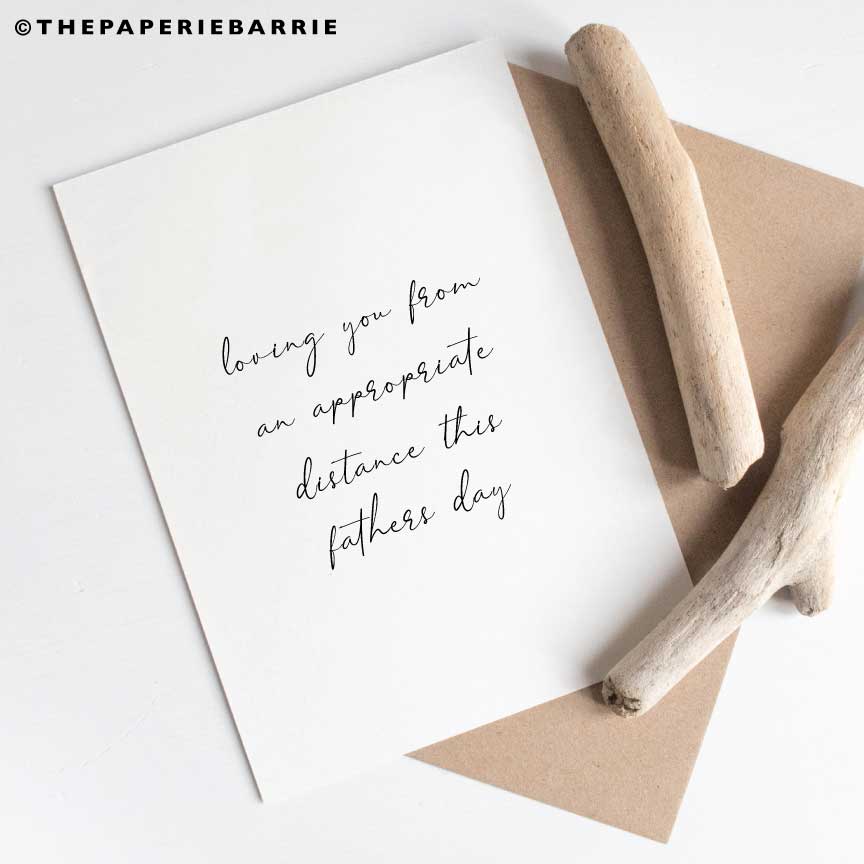 ©THEPAPERIEBARRIE
loving you from
an appropriate
distance this
fathers day